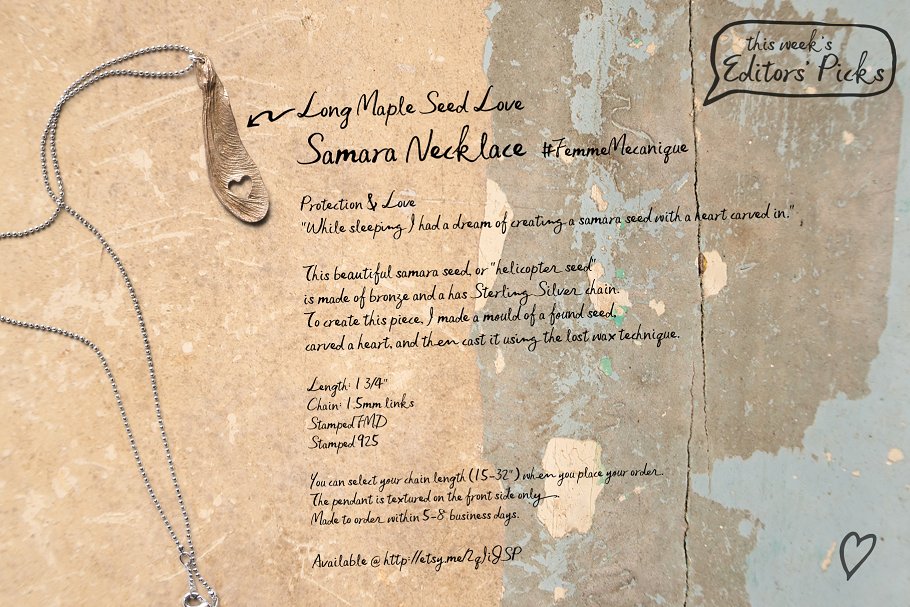 this week's
Editors' Picks
Long Maple Seed Love
Samara Necklace #FemmeMecanique
Protection & Love
"While sleeping I had a dream of creating a samara seed with a heart carved in."
This beautiful samara seed, or "helicopter seed"
is made of bronze and a has Sterling Silver chain.
To create this piece, I made a mould of a found seed,
carved a heart, and then cast it using the lost wax technique.
Length: 1 3/4"
Chain: 1.5mm links
Stamped FMD
Stamped 925
You can select your chain length (15-32") when you place your order.
The pendant is textured on the front side only
Made to order within 5-8 business days.
Available @